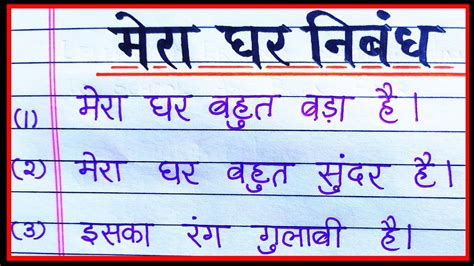 मेरा घर निबंध
(1) मेरा घर बहुत बड़ा है।
(२) मेरा घर बहुत सुंदर है।
(३) इसका रंग गुलाबी है।